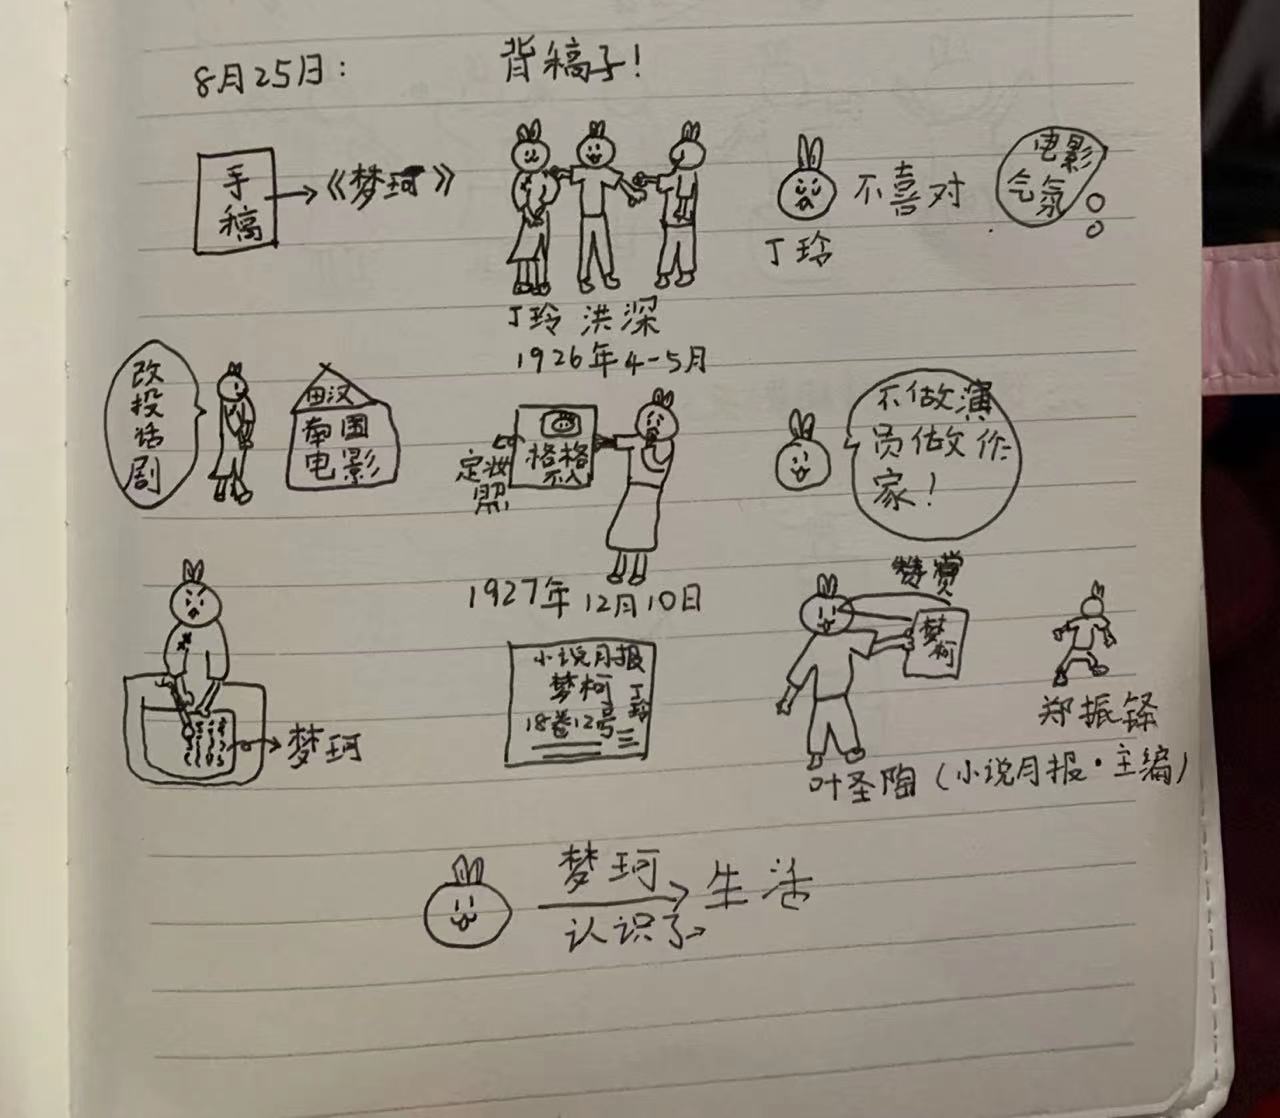 8月25日： 背稿子！
手稿 《梦珂》
丁玲 洪深
1926年4-5月
丁玲
不喜对
电影
气氛
改投话剧
田汉
南国
电影
定妆照
格格
不做演
员做作
家！
1927年12月10日
梦珂
小说月报
梦柯
丁玲
18卷12号
赞赏
梦柯
叶圣陶（小说月报·主编）
郑振铎
梦珂
认识了
生活